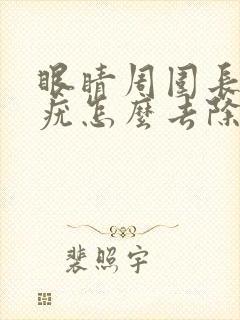 眼睛周围长
疣怎麼去除
裴照宇